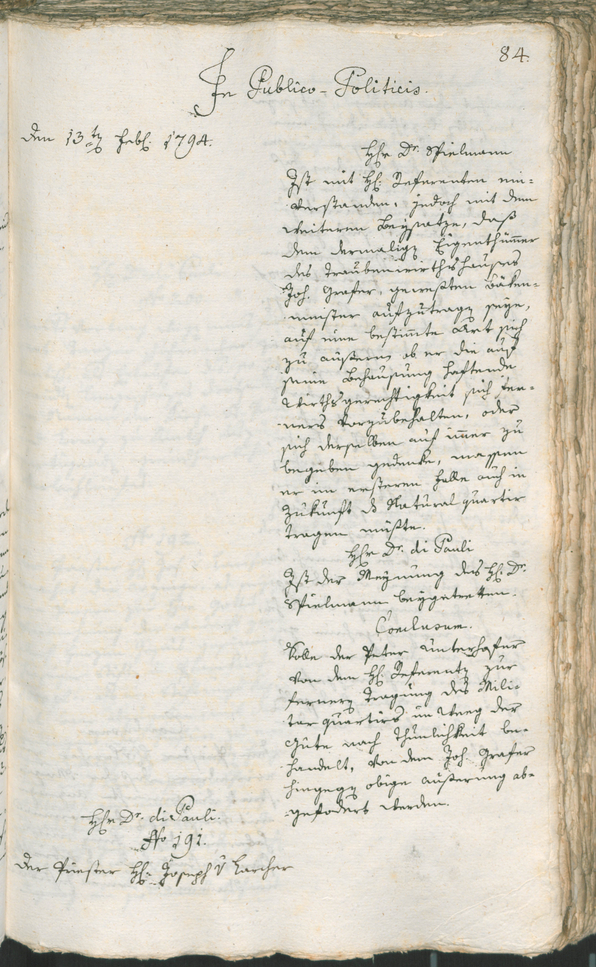 84.
In Publico-Politicis.
den 13ten Febr. 1794.
Hr. Dr. Spielmann
Ist mit H. Referenten ein-
verstanden, jedoch mit dem
weiteren Beysatze, daß
dem dermalign Eigenthümer
des Traubenwirthshauses
Joh. Grafer, gewesten Bäken-
meister aufzutragn seye,
auf eine bestimte Art sich
zu äußeren ob er die auf
seine Behausung haftende
Wirthsgerechtigkeit sich fer-
ners vorzubehalten, oder
sich derselben auf immer zu
begeben gedenke, massen
er im ersteren Falle auch in
Zukunft das Natural quartir
tragen müßte.
Hr. Dr. di Pauli
Ist der Meynung des H. Dr.
Spielmann beygetretten.
Conclusum.
Solle der Peter Unterhofer
von dem H. Referenten zur
fernern Tragung des Mili-
tar quartirs im Weeg der
Güte nach Thunlichkeit be-
handelt, von dem Joh. Grafer
hingegn obige äußerung ab-
gefodert werden.
Hr. Dr. di Pauli.
No 191.
Der Priester H. Joseph v Larcher